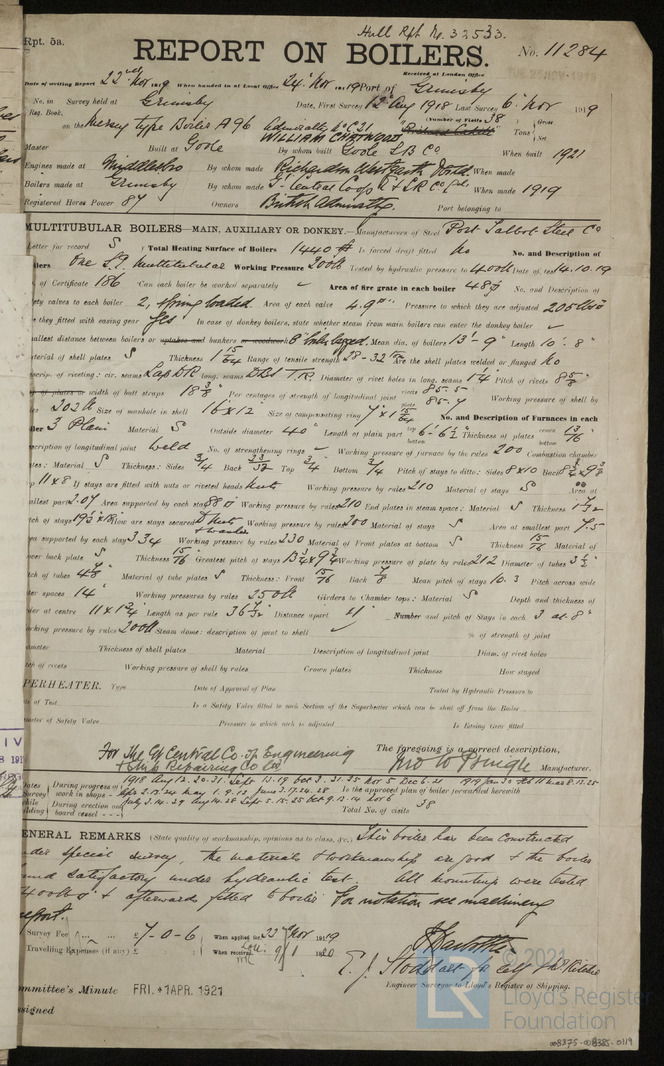 Hull Rpt. No. 32533.
Rpt. 5a.
REPORT ON BOILERS.
No. 11284
Received at London Office
Date of writing Report 22nd Nov 1919 When handed in at Local Office 24. Nov. 1919 Port of Grimsby
No. in Survey held at Grimsby Date, First Survey 12th Aug 1918 Last Survey 6. Nov 1919
Reg. Book. (Number of Visits 38
on the Mersey type Boiler A 96 Admiralty No C21 Tons Gross Net
WILLIAM CHATWOOD
Master Built at Goole By whom built Goole S B Co When built 1921
Engines made at Middlesbro By whom made Richardson Westgarth When made
Boilers made at Grimsby By whom made Gt Central Coop E & S R Co Ltd When made 1919
Registered Horse Power 87 Owners British Admiralty. Port belonging to
MULTITUBULAR BOILERS—MAIN, AUXILIARY OR DONKEY.—Manufacturers of Steel Port Talbot Steel Co
Letter for record S Total Heating Surface of Boilers 1440 Is forced draft fitted No No. and Description of
Boilers One S.E. Multitubular Working Pressure 200lb Tested by hydraulic pressure to 400lb Date of test 14.10.19
of Certificate 186 Can each boiler be worked separately ✓ Area of fire grate in each boiler No. and Description of
safety valves to each boiler 2, Spring loaded Area of each valve 4.9" Pressure to which they are adjusted 205 lbs
Are they fitted with easing gear Yes In case of donkey boilers, state whether steam from main boilers can enter the donkey boiler ✓
smallest distance between boilers or uptakes and bunkers or woodwork 8" Mean dia. of boilers 13'-9" Length 10'-8"
Material of shell plates S Thickness 1 15/64 Range of tensile strength 28-32 Are the shell plates welded or flanged No
Descrip. of riveting: cir. seams Lap DR long. seams DBS T.R. Diameter of rivet holes in long. seams 1 1/4 Pitch of rivets 8 5/8
width of butt straps 18 3/8 Per centages of strength of longitudinal joint rivets 85.5 plate 85.7 Working pressure of shell by
202 lb Size of manhole in shell 16 x 12 Size of compensating ring 7 x 1 15/64 No. and Description of Furnaces in each
boiler 3 Plain Material S Outside diameter 40" Length of plain part top bottom 6'-6 1/2 Thickness of plates crown bottom 13/16
Description of longitudinal joint Weld No. of strengthening rings ✓ Working pressure of furnace by the rules 200 Combustion chamber
plates: Material S Thickness: Sides 3/4 Back 23/32 Top 3/4 Bottom 3/4 Pitch of stays to ditto: Sides 8x10 Back
11x8 If stays are fitted with nuts or riveted heads Nuts Working pressure by rules 210 Material of stays S Area at
smallest part 2.07 Area supported by each stay 88 Working pressure by rules 210 End plates in steam space: Material S Thickness 1 1/32
Pitch of stays How are stays secured D Nuts & washer Working pressure by rules 200 Material of stays S Area at smallest part 7.5
Area supported by each stay 334 Working pressure by rules 230 Material of Front plates at bottom S Thickness 15/16 Material of
Lower back plate S Thickness 15/16 Greatest pitch of stays Working pressure of plate by rules 212 Diameter of tubes 3 1/2
Pitch of tubes 4 7/8 Material of tube plates S Thickness: Front 15/16 Back 7/8 Mean pitch of stays 10.3 Pitch across wide
water spaces 14" Working pressures by rules 250lb Girders to Chamber tops: Material S Depth and thickness of
girder at centre Length as per rule Distance apart 11 Number and pitch of Stays in each 3 at 8"
Working pressure by rules 200lb Steam dome: description of joint to shell ✓ % of strength of joint
Diameter Thickness of shell plates Material Description of longitudinal joint Diam. of rivet holes
Pitch of rivets Working pressure of shell by rules Crown plates Thickness How stayed
SUPERHEATER. Type Date of Approval of Plan Tested by Hydraulic Pressure to
Date of Test Is a Safety Valve fitted to each Section of the Superheater which can be shut off from the Boiler
Diameter of Safety Valve Pressure to which each is adjusted Is Easing Gear fitted
The foregoing is a correct description,
For The Gt Central Co-op Engineering
& Ship Repairing Co Ltd Manufacturer.
Dates of Survey while During progress of work in shops - 1918 Aug 12.20.31 Sept 13.19 Oct 3.21.25 Nov 5 Dec 6.21 1919 Jan 30 Feb 11 Mar 8.13.25
Is the approved plan of boiler forwarded herewith
During erection on board vessel - July 3.14.29 Aug 14.28 Sept 5.15.25 Oct 9.13.14 Nov 6 Total No. of visits 38
GENERAL REMARKS (State quality of workmanship, opinions as to class, &c.) This boiler has been constructed
under special survey, the materials & workmanship are good & the boiler
found satisfactory under hydraulic test. All mountings were tested
400lb & afterwards fitted to boiler. For notation see machinery
report.
Survey Fee £7-0-6 When applied for, 22 Nov 1919
Travelling Expenses (if any) £ When received, 9/1 1920
E. J. Stoddart for self &
Engineer Surveyor to Lloyd's Register of Shipping.
Committee's Minute FRI. 1 APR. 1921
Assigned
© 2021
Lloyd's Register
Foundation
008375-008385-0119